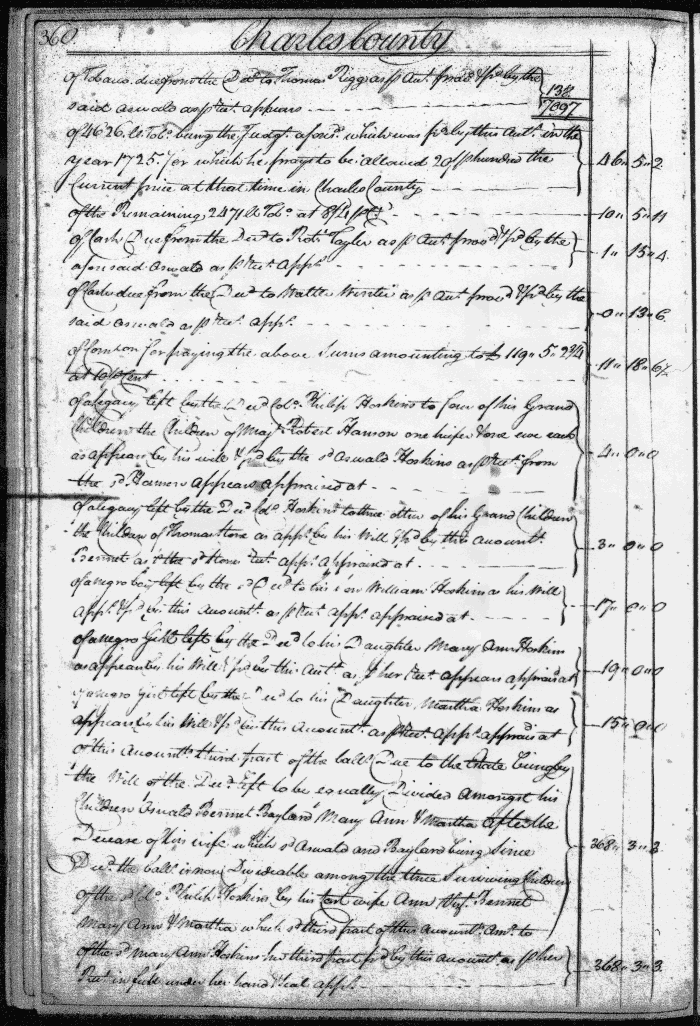 360 Charles County
of Tobacco due from the Decd to Thomas Rigg as pr Acct. prov'd & pd by the 138
said oswald as pr Rect. appears 7097
of 4626 lb Tobo. being the Judgt. aforsd. which was pd by this Acct. in the
year 1725 for which he prays to be allowed pr hundred the 46 " 5 " 2
Current price at that time in Charles County
of the Remaining 2471 lb Tobo. at 8/4 10 " 5 " 11
of Cash Due from the Decd to Robt. Tayler as pr Acct prov'd & pd by the 1 " 15 " 4
afors said oswald as pr Rect. Appr.
of Cash due from the Decd to Walter Winter as pr Acct prov'd & pd by the
said oswald as pr Rect. appr. 0 " 13 " 6
of for paying the above Sums amounting to £ 119 " 5 " 2 3/4 11 " 18 " 6 1/2
at 10 Pr Cent
of a legacy left by the Decd Colo. Philip Hoskins to four of his Grand
Children the Children of Majr. Robert Hanson one heifer & one ewe each
as appears by his will & pd by the sd Oswald Hoskins as pr Rect. from 4 " 0 " 0
the sd. Hanson Appears appraised at
of a legacy left by the Decd Colo. Hoskins to three other of his Grand Children
the Children of Thomas Stone as appr. by his Will & pd by this Accountt. 3 " 0 " 0
Bennet as the sd Stones Rect. Appr. Appraised at
of a negro boy left by the sd Decd to his son William Hoskins as his Will
appr. & pd by this Accountt. as pr Rect appr. appraised at 17 " 0 " 0
of a negro Girl left by the Decd to his Daughter Mary Ann Hoskins
as appears by his Will & pd by this Acct. as pr her Rect. appears appraisd at 19 " 0 " 0
of a negro Girl left by the Decd to his Daughter Martha Hoskins as
appears in his Will & pd by this Accountt. as pr Rect. Appr. apprais'd at 15 " 0 " 0
of this Accountts. third part of the balla. Due to the Estate being by
the Will of the Decd. left to be equally Divided Amongst his
Children Oswald Bennet Bayland Mary Ann & Martha After the
Decease of his wife which sd Oswald and Bayland being Since 368 " 3 " 3
Decd. the balla. is now Divideable among the three Surviving Children
of the sd Colo. Philip Hoskins by his last wife Ann Vizt. Bennet
Mary Ann & Martha which sd third part of this Accountt. Amts. to
of the sd Mary Ann Hoskins her third part pd by this Accountt. as pr her 368 " 3 " 3
Rect. in full under her hand & Seal appr.